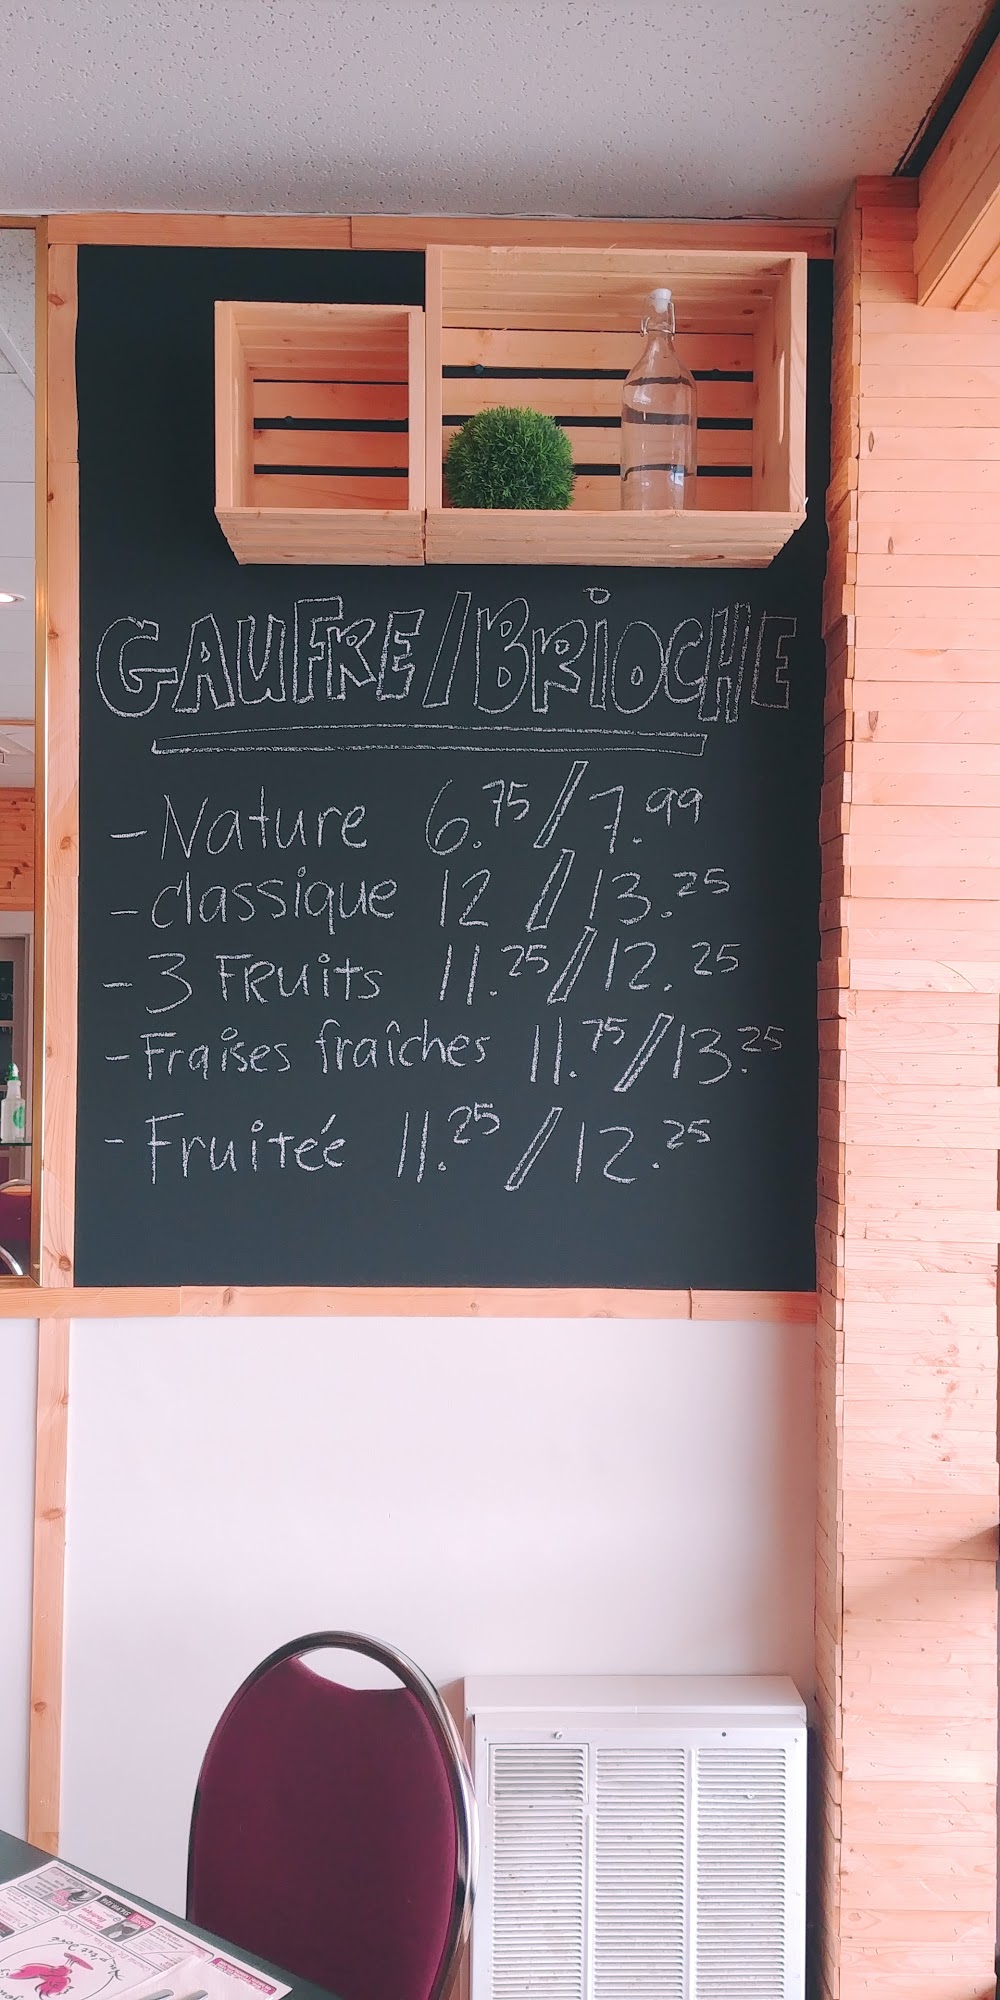 GAUFRE/BRiOCHE
- Nature 6.75/7.99
- classique 12 /13.25
- 3 FRuits 11.25/12.25
- Fraises fraîches 11.75/13.25
- Fruiteé 11.25/12.25